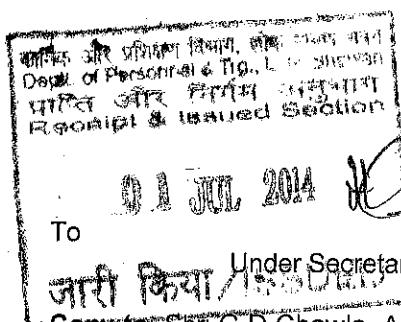 कार्मिक और प्रशिक्षण विभाग, लोक नायक भवन
Deptt. of Personnel & Trg., L. N. Bhawan
प्राप्ति और निर्गम अनुभाग
Receipt & Issued Section
01 JUL 2014
To
जारी किया / ISSUED
Under Secretar
G.D. Chawla, A